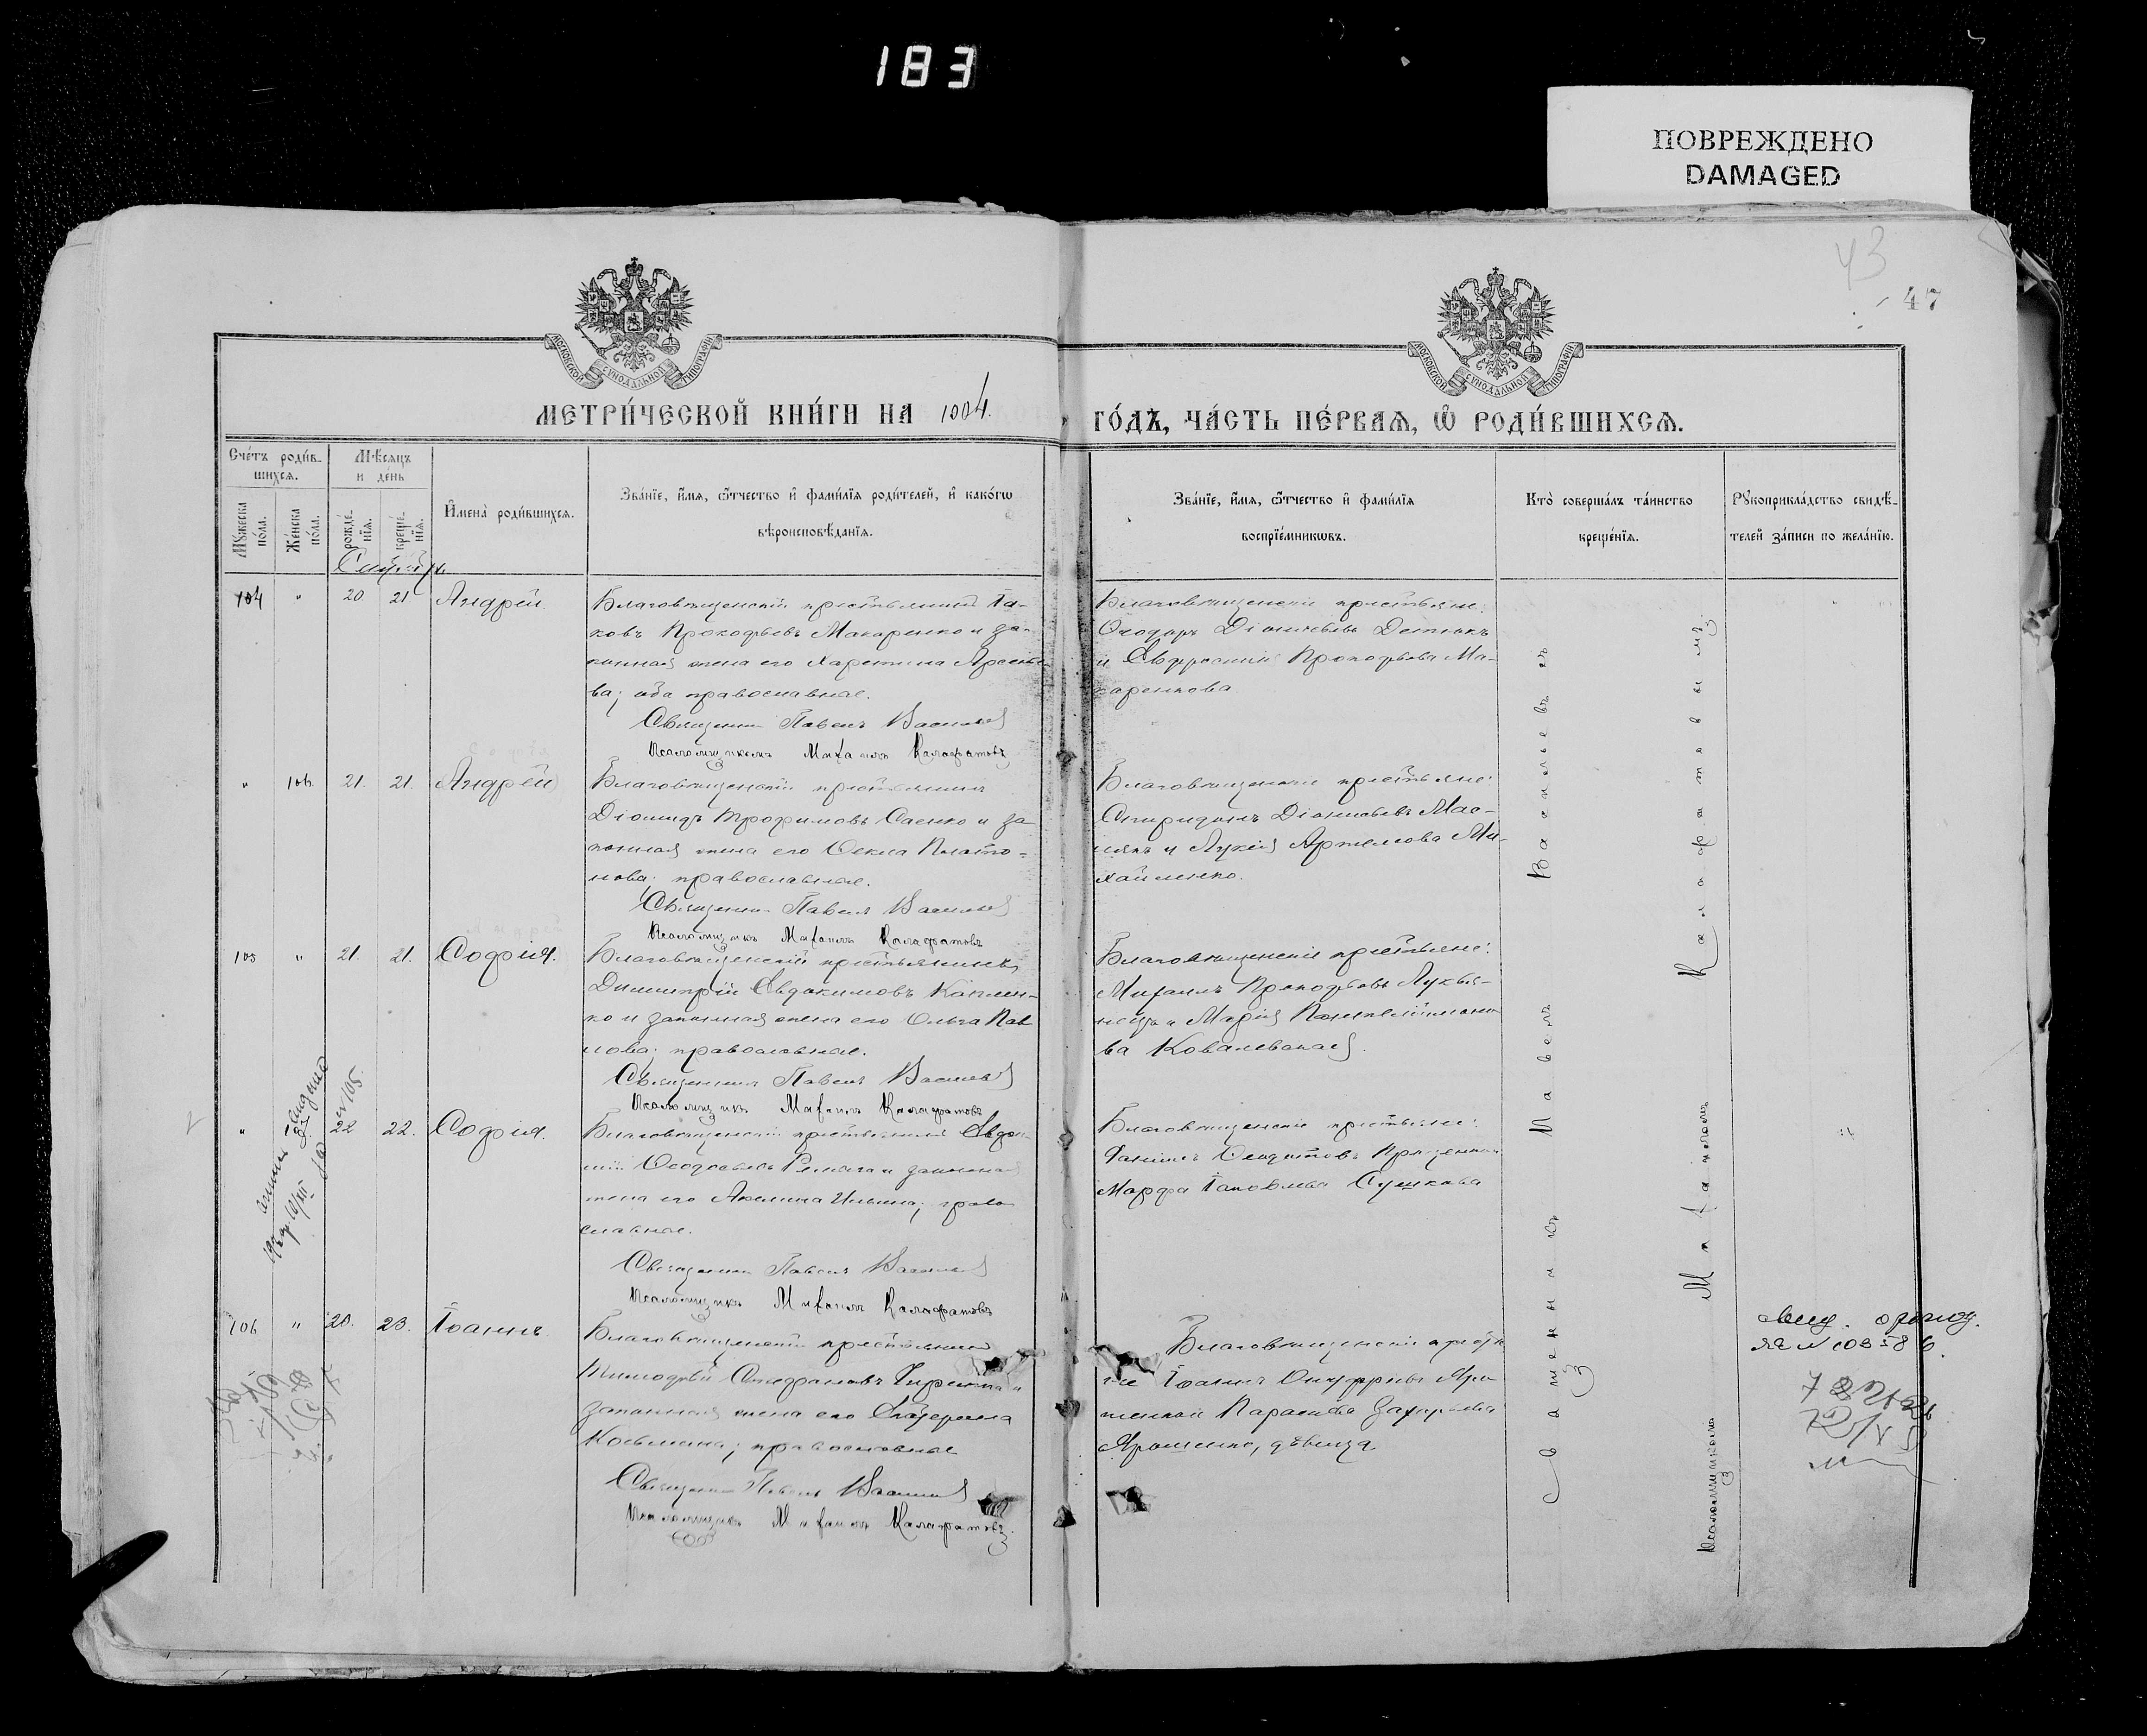 183
ПОВРЕЖДЕНО
DAMAGED
43
47
МОСКОВСКОЙ СѴНОДАЛЬНОЙ ТИПОГРАФІИ
МОСКОВСКОЙ СѴНОДАЛЬНОЙ ТИПОГРАФІИ
МЕТРИ́ЧЕСКОЙ КНИ́ГИ НА 1904.
ГО́ДЪ, ЧА́СТЬ ПЕ́РВАѦ, Ѽ РОДИ́ВШИХСѦ.
Сче́тъ роди́в-
шихсѧ.
Мѣ́сѧцъ
и де́нь
Мꙋ́жеска по́ла.
Же́нска по́ла.
рожде́-нїѧ.
креще́-нїѧ.
И҆мена̀ роди́вшихсѧ.
Зва́нїе, и҆́мѧ, ѻ҆́тчество и҆ фами́лїѧ роди́телей, и҆ како́гѡ
вѣроисповѣ́данїѧ.
Зва́нїе, и҆́мѧ, ѻ҆́тчество и҆ фами́лїѧ
воспрїе́мникѡвъ.
Кто̀ соверша́лъ та́инство
креще́нїѧ.
Рꙋкоприкла́дство свидѣ́-
телей за́писи по жела́нїю.
104 " 20 21 Андрей.
Благовѣщенскій крестьянинъ Іа-
ковъ Прокофьевъ Макаренко и за-
конная жена его Харитина Арсенье-
ва; оба православные.
Священникъ Павелъ Васильевъ
Псаломщикъ Михаилъ Калафатовъ
Благовѣщенскіе крестьяне:
Ѳеодоръ Діонисьевъ
и Евфросинія Прокофьева Ма-
каренкова
" 106 21. 21. Андрей
Благовѣщенскій крестьянинъ
Діомидъ Трофимовъ Саенко и за-
конная жена его Ѳекла Плато-
нова; православные.
Священникъ Павелъ Васильевъ
Псаломщикъ Михаилъ Калафатовъ
Благовѣщенскіе крестьяне:
Спиридонъ Діонисьевъ Мас-
и Лукія Артемова Ми-
хайленко.
105 " 21 21. Софія.
Благовѣщенскій крестьянинъ
Димитрій Евдокимовъ Каплен-
ко и законная жена его Ольга Пав
лова; православные.
Священникъ Павелъ Васильевъ
Псаломщикъ Михаилъ Калафатовъ
Благовѣщенскіе крестьяне:
Михаилъ Прокофьевъ Лукья-
нецъ и Марія Пантелеимоно
ва Ковалевская.
" 22 22. Софія.
№ 105.
Благовѣщенскій крестьянинъ Евдо-
Ѳеодосьевъ и законная
жена его Акилина Ильина; право
славные.
Священникъ Павелъ Васильевъ
Псаломщикъ Михаилъ Калафатовъ
Благовѣщенскіе крестьяне:
Марфа Іаковлева Сушкова
106 " 20. 23. Іоаннъ
Благовѣщенскій крестьянинъ
Тимофей Стефановъ и
законная жена его Екатерина
Косьмина; православные
Священникъ Павелъ Васильевъ
Псаломщикъ Михаилъ Калафатовъ
Благовѣщенскіе крестья
не Іоаннъ Онуфріевъ Яро
шенко и Параскева Захарьева
Ярошенко, дѣвица.
Священникъ Павелъ Васильевъ съ
Псаломщикомъ Михаиломъ Калафатовымъ